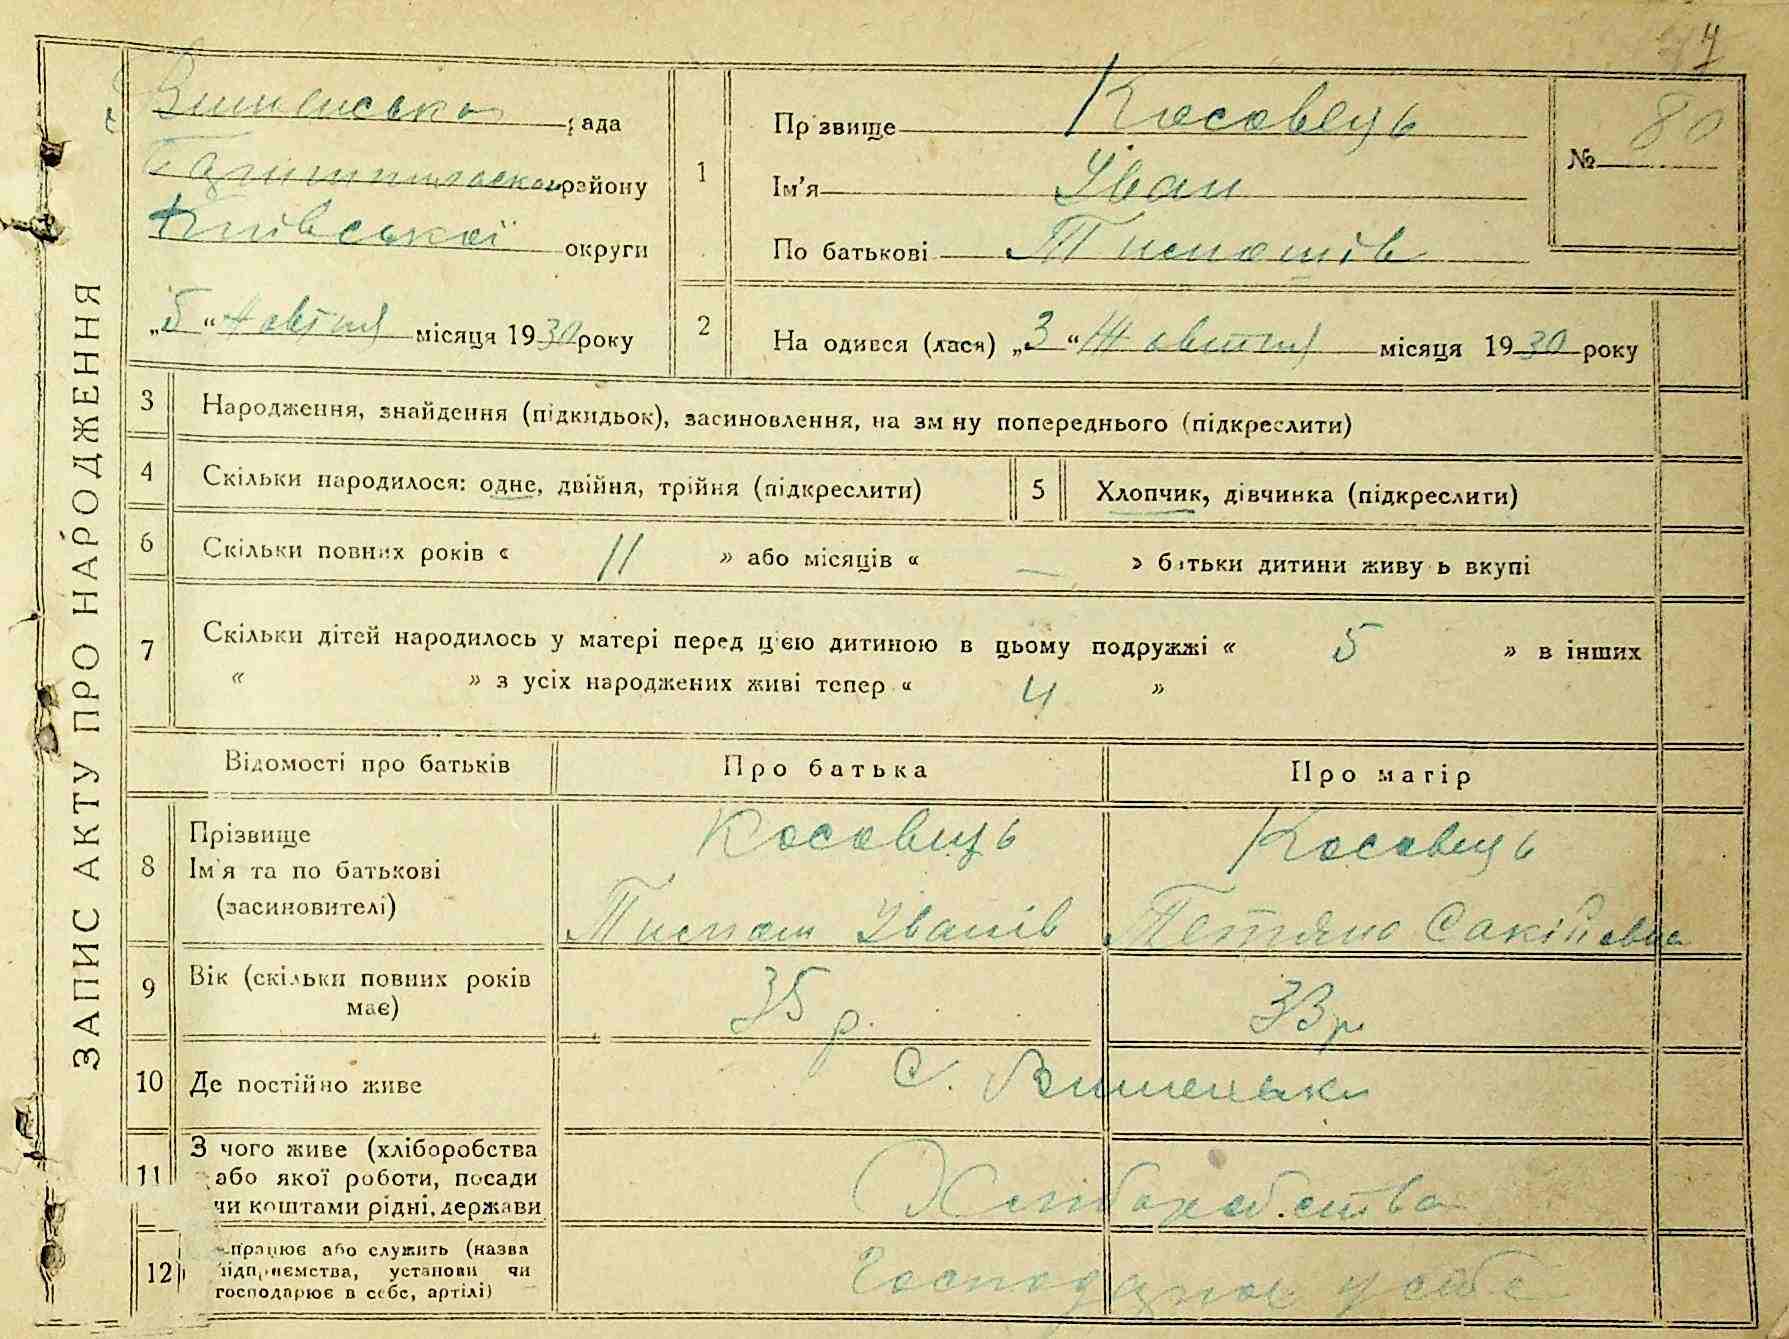 7
ЗАПИС АКТУ ПРО НАРОДЖЕННЯ
рада
району
Київської округи
„5“ Жовтня місяця 1930 року
1
Прізвище Косовець
Ім'я Іван
По батькові Тимошів
№ 80
2
На одився (лася) „3“ Жовтня місяця 1930 року
3 Народження, знайдення (підкидьок), засиновлення, на зм ну попереднього (підкреслити)
4 Скільки народилося: одне, двійня, трійня (підкреслити)
5 Хлопчик, дівчинка (підкреслити)
6 Скільки повних років « 11 » або місяців « — » батьки дитини живу ь вкупі
7 Скільки дітей народилось у матері перед цією дитиною в цьому подружжі « 5 » в інших
« » з усіх народжених живі тепер « 4 »
Відомості про батьків
Про батька
Про матір
8 Прізвище
Ім'я та по батькові
(засиновителі)
Косовець
Тимош Іванів
Косовець
Тетяна
9 Вік (скільки повних років
має)
35 р.
33 р
10 Де постійно живе
С. Вишеньки
11 З чого живе (хліборобства
або якої роботи, посади
чи коштами рідні, держави
Хліборобства
12 працює або служить (назва
підприємства, установи чи
господарює в себе, артілі)
Господарює у себе